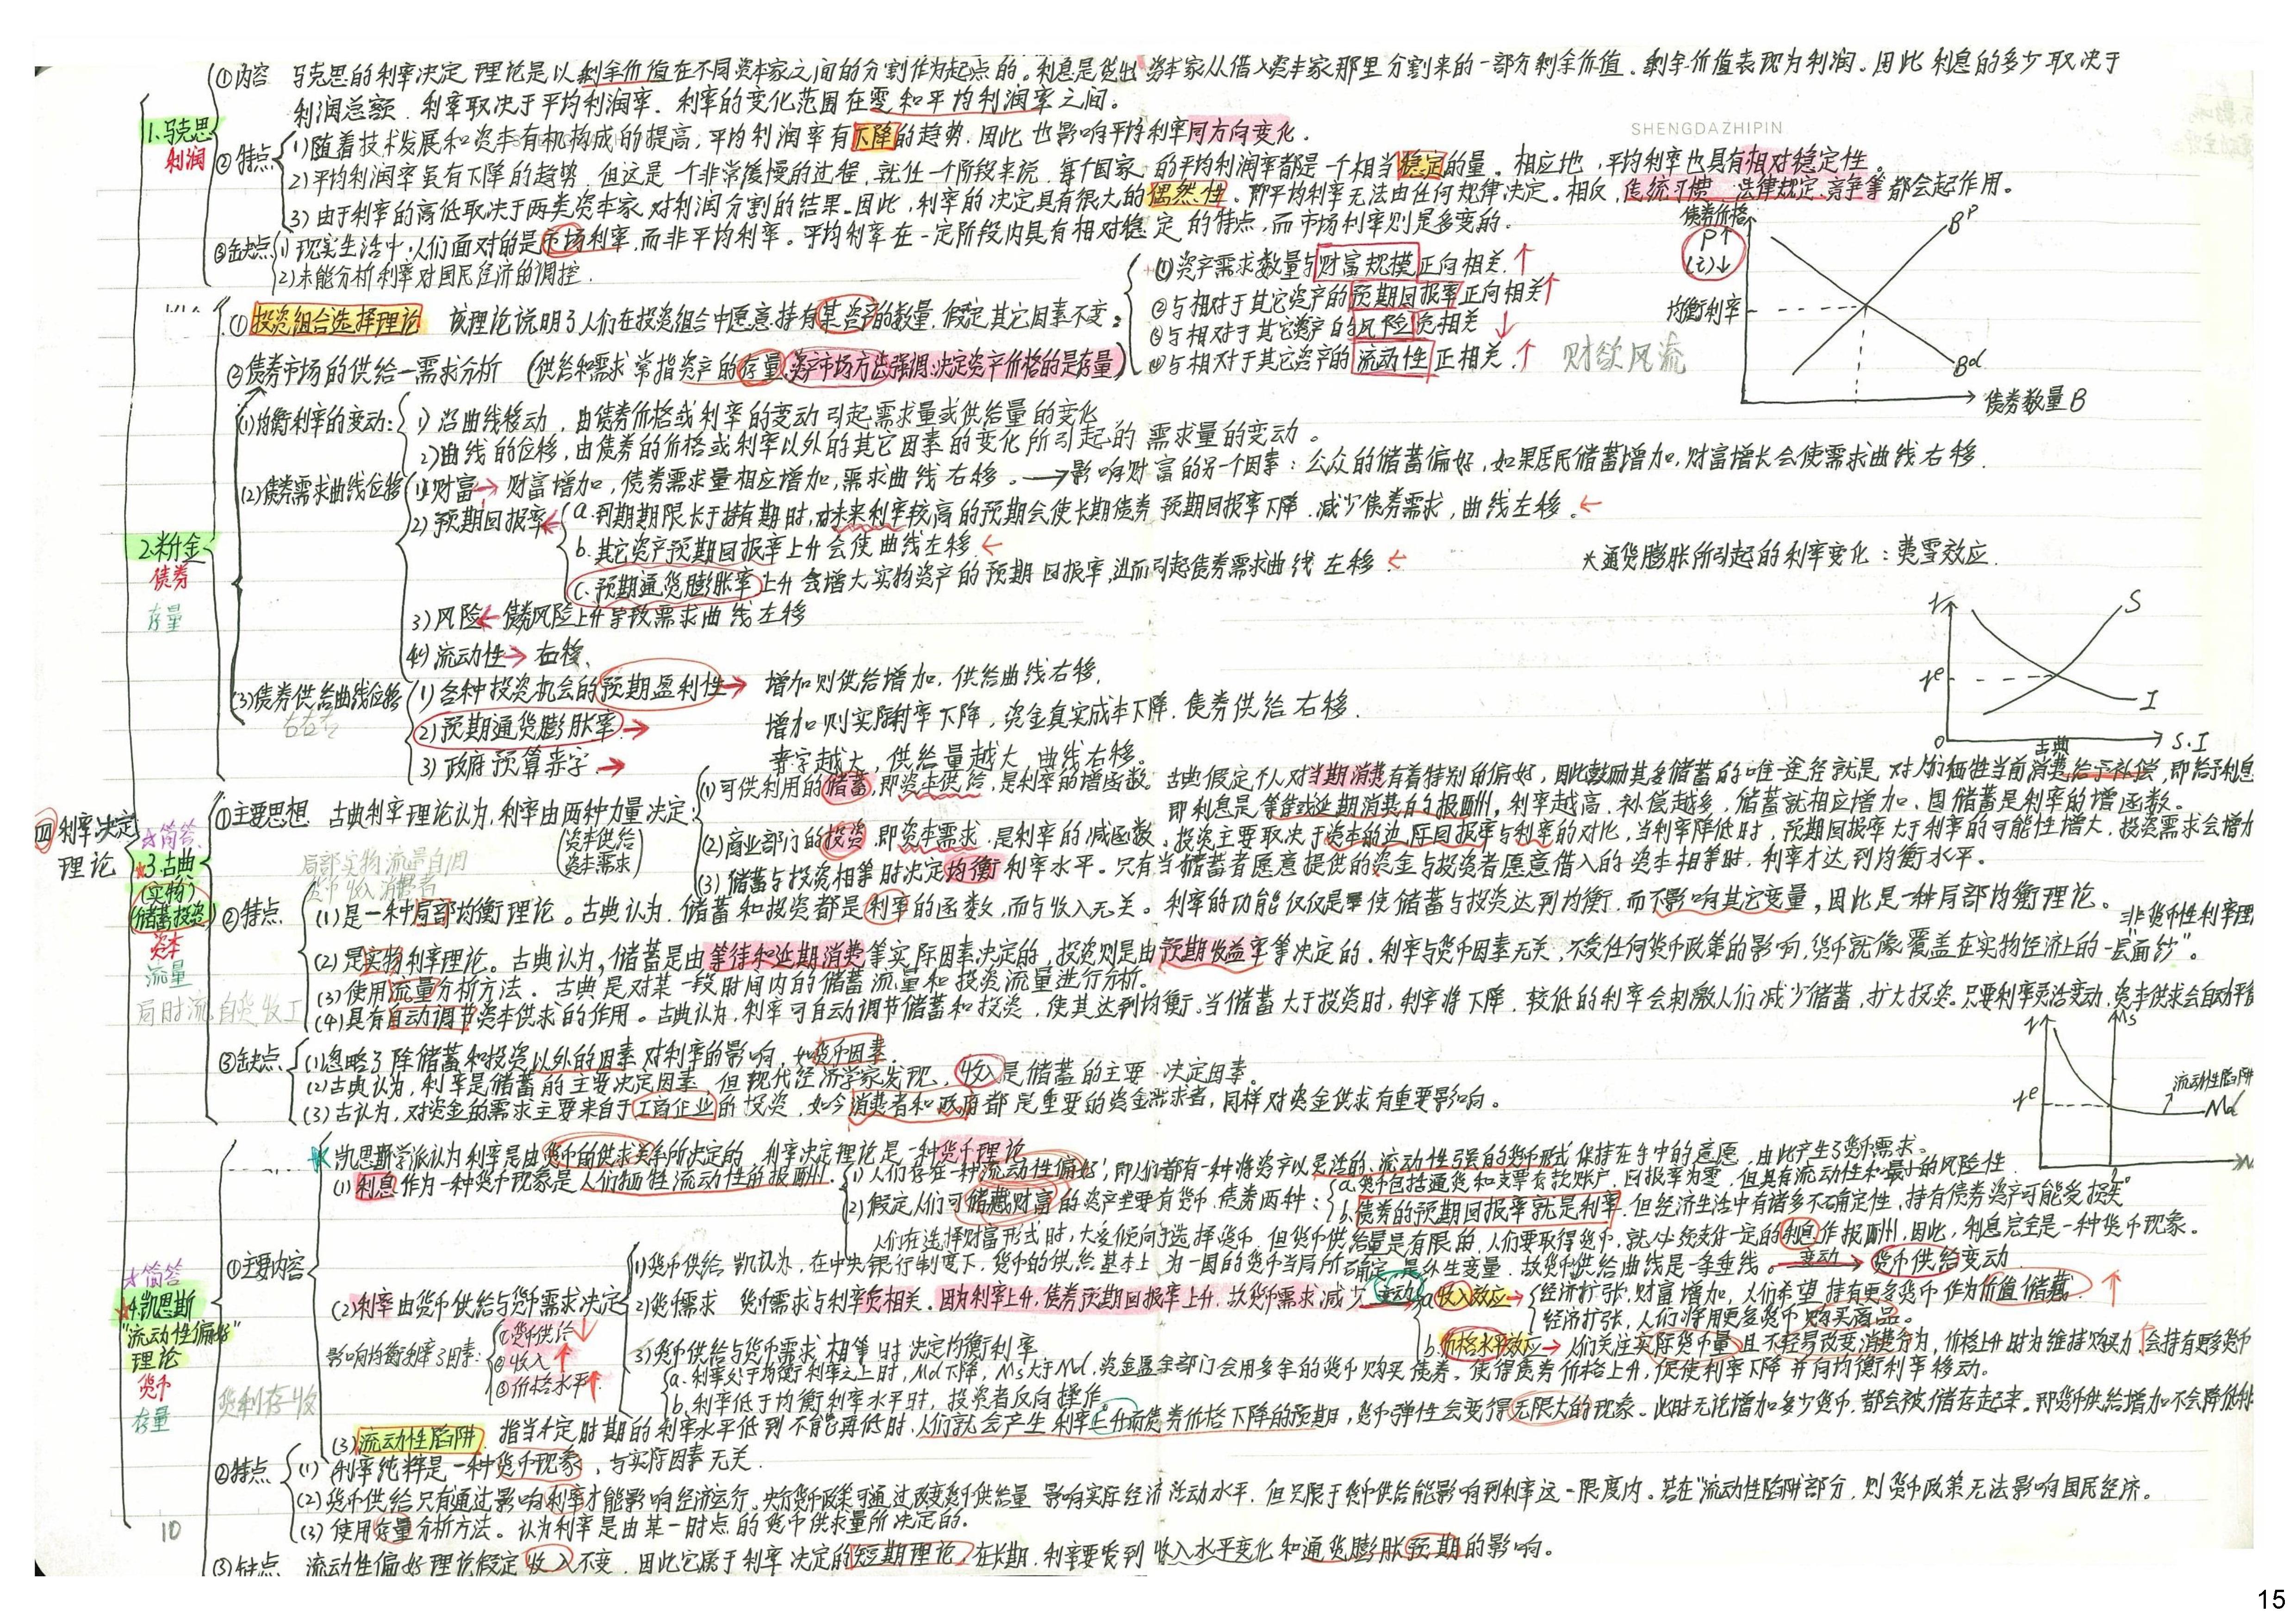 SHENGDAZHIPIN
四 利率决定理论
1.马克思
利润
①内容 马克思的利率决定理论是以剩余价值在不同资本家之间的分割作为起点的。利息是贷出资本家从借入资本家那里分割来的一部分剩余价值。剩余价值表现为利润。因此利息的多少取决于
利润总额,利率取决于平均利润率。利率的变化范围在零和平均利润率之间。
②特点
1)随着技术发展和资本有机构成的提高,平均利润率有下降的趋势,因此也影响平均利率同方向变化。
2)平均利润率虽有下降的趋势,但这是一个非常缓慢的过程,就任一个阶段来说,每个国家的平均利润率都是一个相当稳定的量。相应地,平均利率也具有相对稳定性。
3)由于利率的高低取决于两类资本家对利润分割的结果。因此,利率的决定具有很大的偶然性。即平均利率无法由任何规律决定。相反,传统习惯、法律规定、竞争等都会起作用。
③缺点
1)现实生活中,人们面对的是市场利率,而非平均利率。平均利率在一定阶段内具有相对稳定的特点,而市场利率则是多变的。
2)未能分析利率对国民经济的调控.
债券价格
P↑
(i)↓
均衡利率
Bᵖ
Bd
债券数量B
2.粉金
债券
存量
①投资组合选择理论 该理论说明了人们在投资组合中愿意持有某资产的数量,假定其它因素不变:
①资产需求数量与财富规模正向相关.↑
②与相对于其它资产的预期回报率正向相关↑
③与相对于其它资产的风险负相关↓
④与相对于其它资产的流动性正相关.↑
财欲风流
②债券市场的供给—需求分析 (供给和需求常指资产的存量,资产市场方法强调:决定资产价格的是存量)
(1)均衡利率的变动:
1)沿曲线移动,由债券价格或利率的变动引起需求量或供给量的变化
2)曲线的位移,由债券的价格或利率以外的其它因素的变化所引起的需求量的变动。
(2)债券需求曲线位移
1)财富→财富增加,债券需求量相应增加,需求曲线右移。→影响财富的另一个因素:公众的储蓄偏好,如果居民储蓄增加,财富增长会使需求曲线右移.
2)预期回报率←
a.到期期限长于持有期时,对未来利率较高的预期会使长期债券预期回报率下降,减少债券需求,曲线左移.←
b.其它资产预期回报率上升会使曲线左移.←
c.预期通货膨胀率上升会增大实物资产的预期回报率,进而引起债券需求曲线左移.←
*通货膨胀所引起的利率变化:费雪效应.
3)风险←债券风险上升导致需求曲线左移
4)流动性→右移.
(3)债券供给曲线位移
右右右
1)各种投资机会的预期盈利性→ 增加则供给增加,供给曲线右移.
2)预期通货膨胀率→ 增加则实际利率下降,资金真实成本下降,债券供给右移.
3)政府预算赤字→ 赤字越大,供给量越大,曲线右移。
r
S
rᵉ
I
0
S.I
古典
☆简答
★3.古典
(实物)
(储蓄投资)
资本
流量
局时流自货收工
①主要思想 古典利率理论认为,利率由两种力量决定:
(资本供给
资本需求)
局部实物流量自由
货币收入消费者
(1)可供利用的储蓄,即资本供给,是利率的增函数。古典假定个人对当期消费有着特别的偏好,因此鼓励其多储蓄的唯一途径就是对人们牺牲当前消费给予补偿,即给予利息
即利息是等待或延期消费的报酬,利率越高,补偿越多,储蓄就相应增加。因储蓄是利率的增函数。
(2)商业部门的投资,即资本需求,是利率的减函数。投资主要取决于资本的边际回报率与利率的对比,当利率降低时,预期回报率大于利率的可能性增大,投资需求会增加
(3)储蓄与投资相等时决定均衡利率水平。只有当储蓄者愿意提供的资金与投资者愿意借入的资本相等时,利率才达到均衡水平。
②特点
(1)是一种局部均衡理论。古典认为,储蓄和投资都是利率的函数,而与收入无关。利率的功能仅仅是使储蓄与投资达到均衡,而不影响其它变量,因此是一种局部均衡理论。
非货币性利率理
(2)是实物利率理论。古典认为,储蓄是由等待和延期消费等实际因素决定的,投资则是由预期收益率等决定的,利率与货币因素无关,不受任何货币政策的影响,货币就像覆盖在实物经济上的一层“面纱”。
(3)使用流量分析方法。古典是对某一段时间内的储蓄流量和投资流量进行分析。
(4)具有自动调节资本供求的作用。古典认为,利率可自动调节储蓄和投资,使其达到均衡。当储蓄大于投资时,利率将下降,较低的利率会刺激人们减少储蓄,扩大投资。只要利率灵活变动,资本供求会自动平衡
③缺点
(1)忽略了除储蓄和投资以外的因素对利率的影响,如货币因素.
(2)古典认为,利率是储蓄的主要决定因素,但现代经济学家发现,收入是储蓄的主要决定因素。
(3)古认为,对资金的需求主要来自于工商企业的投资,如今消费者和政府都是重要的资金需求者,同样对资金供求有重要影响。
r
Ms
rᵉ
流动性陷阱
Md
M
☆简答
★4.凯恩斯
“流动性偏好”
理论
货币
存量
货利存收
①主要内容
凯恩斯学派认为利率是由货币的供求关系所决定的,利率决定理论是一种货币理论
(1)利息作为一种货币现象是人们牺牲流动性的报酬州.
1)人们存在一种“流动性偏好”,即人们都有一种将资产以灵活的、流动性强的货币形式保持在手中的意愿,由此产生了货币需求。
2)假定人们可储藏财富的资产主要有货币、债券两种:
a.货币包括通货和支票存款账户,回报率为零,但具有流动性和最小的风险性
b.债券的预期回报率就是利率,但经济生活中有诸多不确定性,持有债券资产可能受损失
人们在选择财富形式时,大多倾向于选择货币,但货币供给量是有限的,人们要取得货币,就必须支付一定的利息作报酬,因此,利息完全是一种货币现象。
(2)利率由货币供给与货币需求决定
影响均衡利率3因素:
①货币供给↓
②收入↑
③价格水平↑
1)货币供给 凯认为,在中央银行制度下,货币的供给基本上为一国的货币当局所确定,是外生变量,故货币供给曲线是一条垂线。变动→货币供给变动
2)货币需求 货币需求与利率负相关,因为利率上升,债券预期回报率上升,故货币需求减少 变动
a.收入效应→经济扩张,财富增加,人们希望持有更多货币作为价值储藏↑
经济扩张,人们将用更多货币购买商品。
b.价格水平效应→人们关注实际货币量且不轻易改变消费行为,价格上升时为维持购买力↑会持有更多货币
3)货币供给与货币需求相等时决定均衡利率
a.利率处于均衡利率之上时,Md下降,Ms大于Md,资金盈余部门会用多余的货币购买债券,使得债券价格上升,促使利率下降并向均衡利率移动。
b.利率低于均衡利率水平时,投资者反向操作。
(3)流动性陷阱 指当一定时期的利率水平低到不能再低时,人们就会产生利率上升而债券价格下降的预期,货币弹性会变得无限大的现象。此时无论增加多少货币,都会被储存起来。即货币供给增加不会降低利
②特点
(1)利率纯粹是一种货币现象,与实际因素无关.
(2)货币供给只有通过影响利率才能影响经济运行。央行货币政策可通过改变货币供给量影响实际经济活动水平,但只限于货币供给能影响到利率这一限度内。若在“流动性陷阱”部分,则货币政策无法影响国民经济。
(3)使用存量分析方法。认为利率是由某一时点的货币供求量所决定的.
③缺点 流动性偏好理论假定收入不变,因此它属于利率决定的短期理论,在长期,利率要受到收入水平变化和通货膨胀预期的影响。
10
15